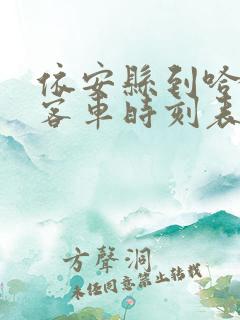 依安縣到哈
客車時刻表
方聲洞
未經同意禁止轉載